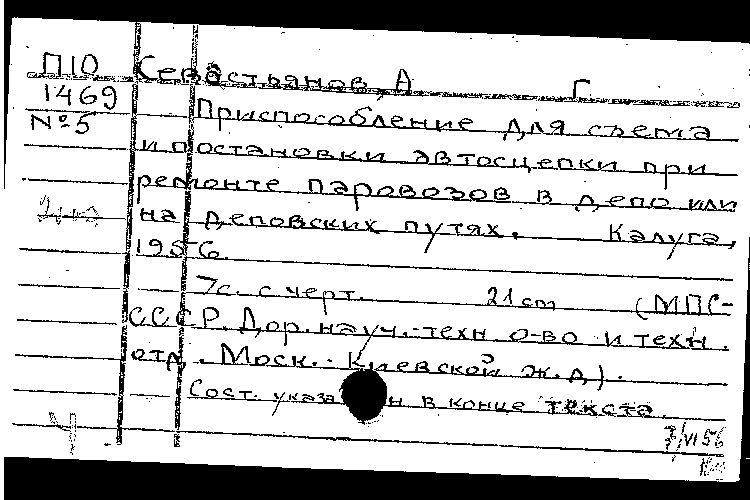 П10 Севастьянов, А Г
1469 Приспособление для съема
№5
и постановки автосцепки при
ремонте паровозов в депо или
на деповских путях. Калуга,
1956.
7с. с черт. 21 cm (МПС-
СССР. Дор. науч.-техн о-во и техн.
отд. Моск.-Киевской ж.д).
Сост. указан в конце текста.
7/VI 56